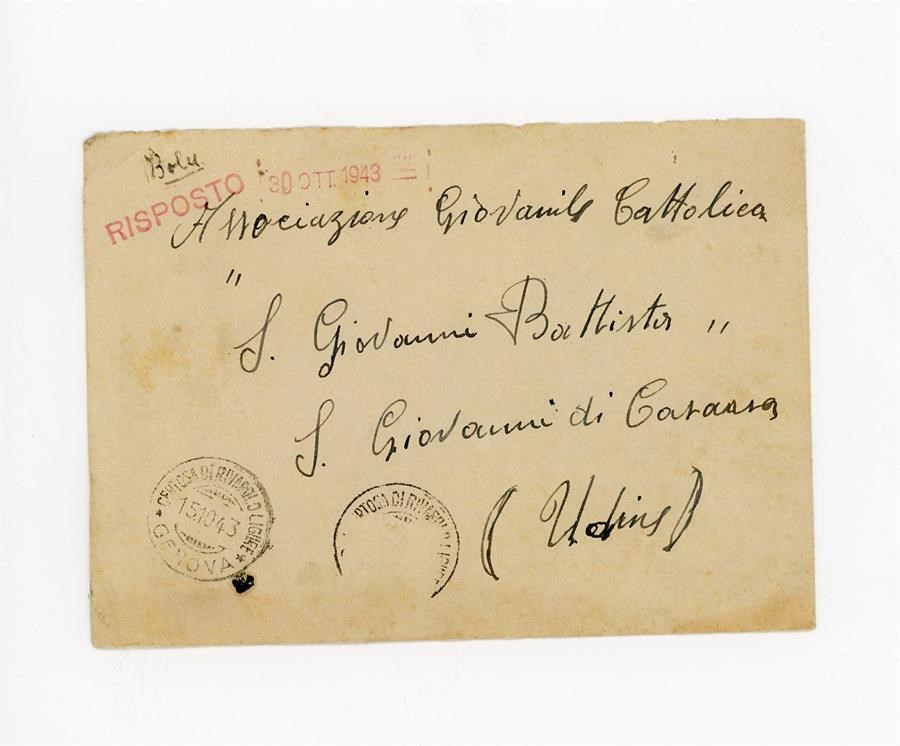 RISPOSTO
30 OTT. 1943
Associazione Giovanile Cattolica
"
S. Giovanni Battista "
S. Giovanni di Casarsa
(Udine)
CERTOSA DI RIVAROLO LIGURE
15.10.43
* GENOVA *
RTOSA DI RIVAROLO LIGURE